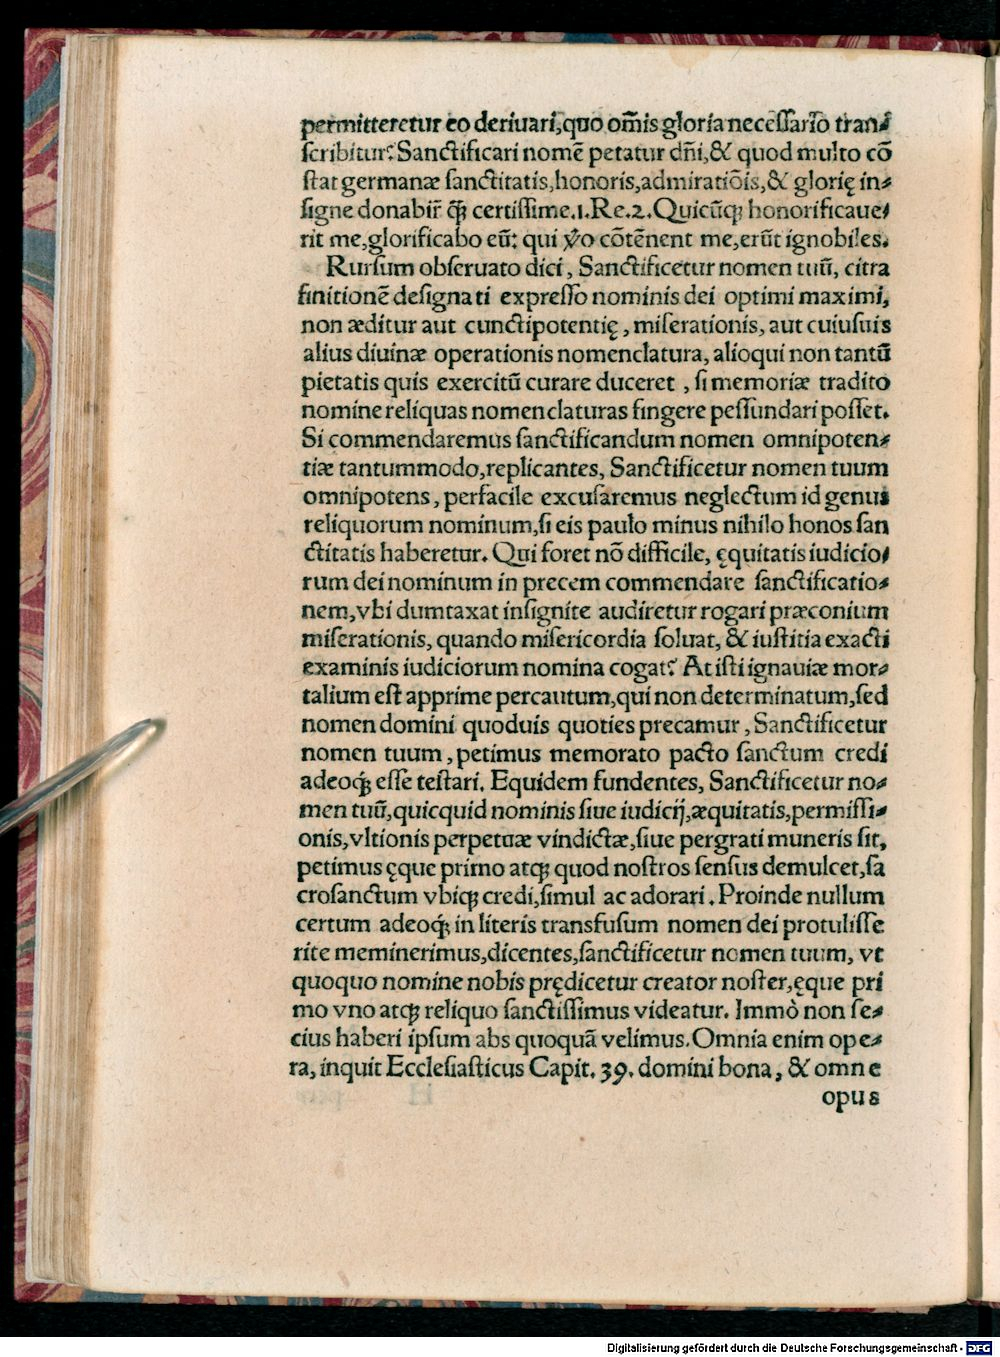 permitteretur eo deriuari,quo om̃is gloria necessario tran⸗
scribitur? Sanctificari nomē petatur dñi,& quod multo cō
stat germanæ sanctitatis,honoris,admiratiōis,& glorię in⸗
signe donabir̃ ꝙ̃ certissime.1.Re.2.Quicūqꝫ honorificaue⸗
rit me,glorificabo eū: qui v̆o cōtēnent me,erūt ignobiles.
Rursum obseruato dici, Sanctificetur nomen tuū, citra
finitionē designati expresso nominis dei optimi maximi,
non æditur aut cunctipotentię, miserationis, aut cuiusuis
alius diuinæ operationis nomenclatura, alioqui non tantū
pietatis quis exercitū curare duceret , si memoriæ tradito
nomine reliquas nomenclaturas fingere pessundari posset.
Si commendaremus sanctificandum nomen omnipoten⸗
tiæ tantummodo,replicantes, Sanctificetur nomen tuum
omnipotens, perfacile excusaremus neglectum id genus
reliquorum nominum,si eis paulo minus nihilo honos san
ctitatis haberetur. Qui foret nō difficile, ęquitatis iudicio⸗
rum dei nominum in precem commendare sanctificatio⸗
nem,vbi dumtaxat insignite audiretur rogari præconium
miserationis, quando misericordia soluat, & iustitia exacti
examinis iudiciorum nomina cogat? At isti ignauiæ mor⸗
talium est apprime percautum,qui non determinatum,sed
nomen domini quoduis quoties precamur, Sanctificetur
nomen tuum, petimus memorato pacto sanctum credi
adeoqꝫ esse testari. Equidem fundentes, Sanctificetur no⸗
men tuū,quicquid nominis siue iudicij,æquitatis,permissi⸗
onis,vltionis perpetuæ vindictæ,siue pergrati muneris sit,
petimus ęque primo atqꝫ quod nostros sensus demulcet,sa
crosanctum vbiqꝫ credi,simul ac adorari. Proinde nullum
certum adeoqꝫ in literis transfusum nomen dei protulisse
rite meminerimus,dicentes,sanctificetur nomen tuum, vt
quoquo nomine nobis prędicetur creator noster,ęque pri
mo vno atqꝫ reliquo sanctissimus videatur. Immò non se⸗
cius haberi ipsum abs quoquā velimus.Omnia enim ope⸗
ra, inquit Ecclesiasticus Capit. 39. domini bona, & omne
opus
Digitalisierung gefördert durch die Deutsche Forschungsgemeinschaft - DFG